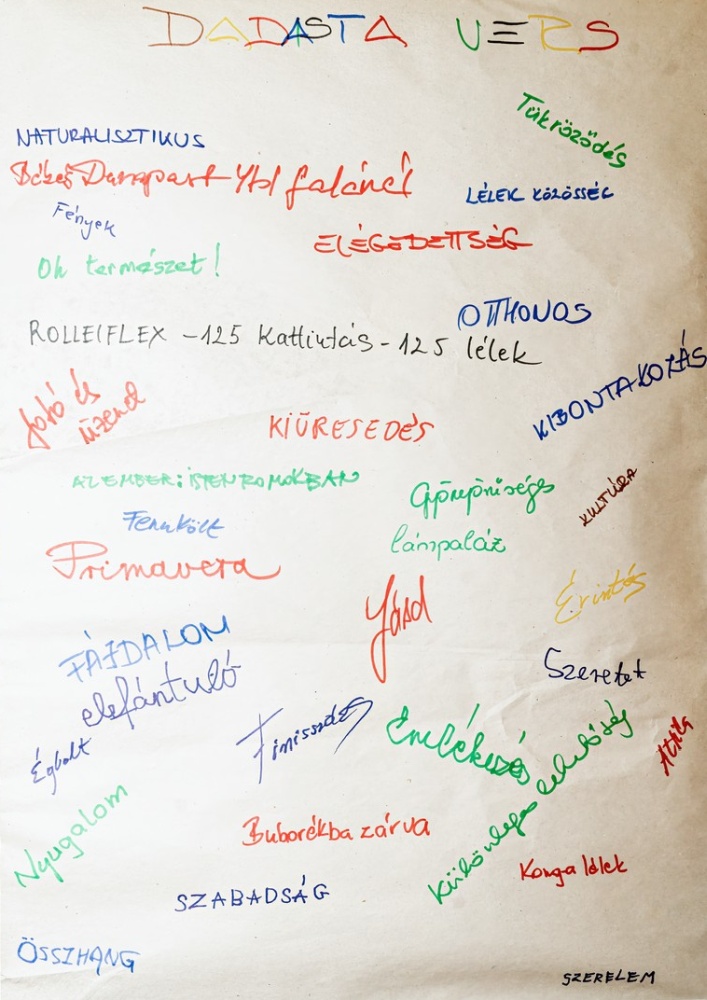 DADASTA VERS
Tükröződés
NATURALISZTIKUS
Dunapart Ybl falánál
LÉLEK KÖZÖSSÉG
Fények
ELÉGEDETTSÉG
Oh természet!
OTTHONOS
ROLLEIFLEX - 125 Kattintás - 125 lélek
KIBONTAKOZÁS
fotó és
üzenet
KIÜRESEDÉS
AZ EMBER: ISTEN ROMOKBAN
Gyönyörűséges
KULTÚRA
Fennkölt
lámpaláz
Primavera
Érintés
Jásd
FÁJDALOM
Szeretet
elefántuló
Finisszázs
Emlékezés
Égbolt
Attila
Különleges lehetőség
Nyugalom
Buborékba zárva
Konga lélek
SZABADSÁG
ÖSSZHANG
SZERELEM